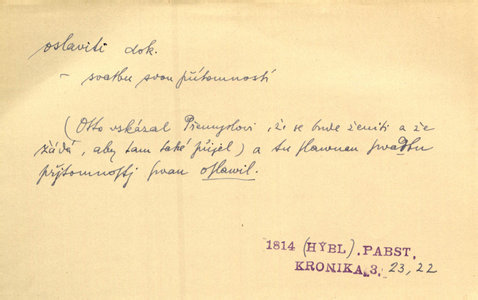 oslaviti dok.
– svatbu svou přítomností
(Otto vzkázal Přemyslovi, že se bude ženiti a že
žádá, aby tam také přijel) a tu slawnau swadbu
přjtomnostj swau oslawil.
1814 (HÝBL). PABST,
KRONIKA, 3. 23, 22